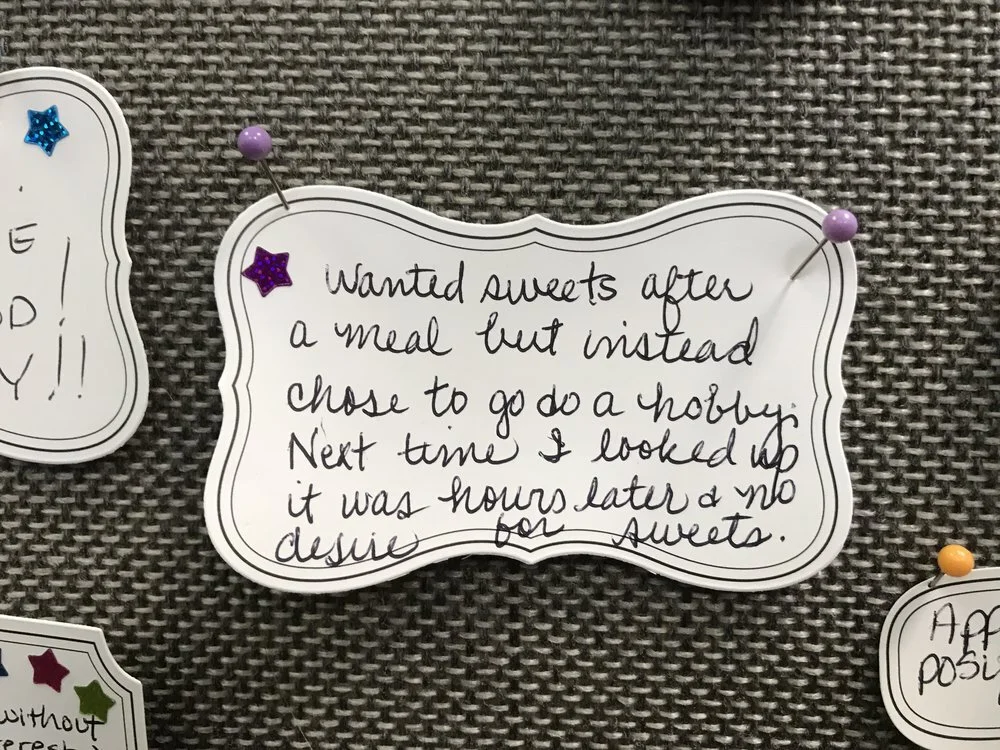 E
D!
Y!!
Wanted sweets after
a meal but instead
chose to go do a hobby.
Next time I looked up
it was hours later & no
desire for sweets.
without
App
posi